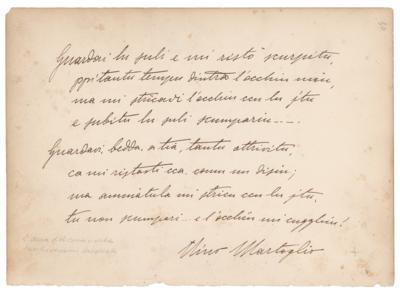 Guardai lu suli e mi ristò scurpitu,
ppi tantu tempu dintra l'occhiu miu,
ma mi stricai l'occhiu cu lu jitu
e subitu lu suli scumpariu....
Guardavi, bedda, a tia, tantu attrivitu,
ca mi ristasti cca, comu un disiu;
ma ammàtula mi stricu cu lu jitu,
tu non scumpari... e l'occhiu mi cugghiu!
Nino Martoglio